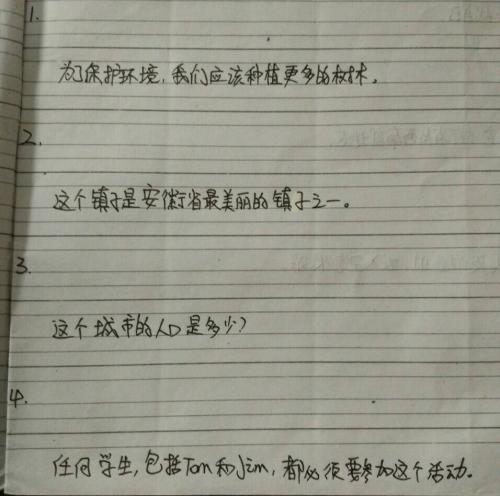 1.
为了保护环境,我们应该种植更多的树木。
2.
这个镇子是安徽省最美丽的镇子之一。
3.
这个城市的人口是多少?
4.
任何学生,包括Tom和Jim,都必须要参加这个活动。